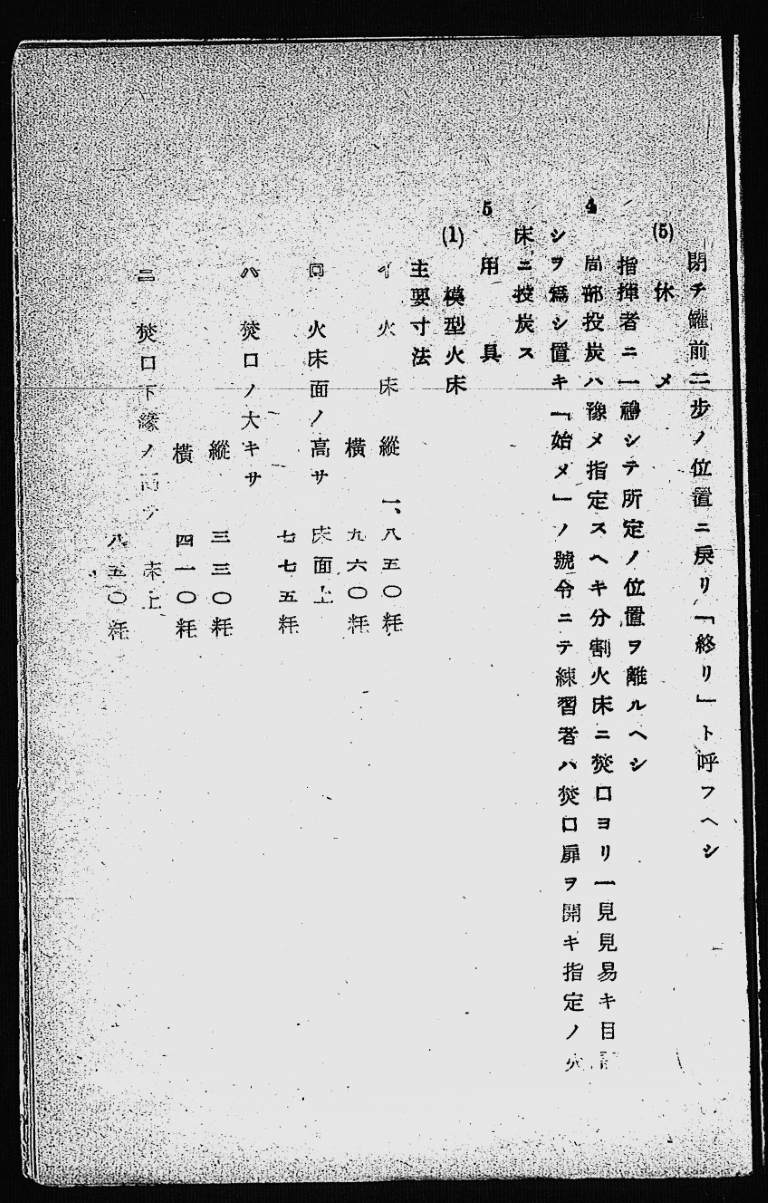 閉チ罐前二歩ノ位置ニ戻リ「終リ」ト呼フヘシ
(5) 休メ
指揮者ニ一禮シテ所定ノ位置ヲ離ルヘシ
4 局部投炭ハ豫メ指定スヘキ分割火床ニ焚口ヨリ一見見易キ目
シヲ爲シ置キ「始メ」ノ號令ニテ練習者ハ焚口扉ヲ開キ指定ノ火
床ニ投炭ス
5 用具
(1) 模型火床
主要寸法
イ 火床 縱 一、八五〇粍
横 九六〇粍
ロ 火床面ノ高サ 床面上
七七五粍
ハ 焚口ノ大キサ
縱 三三〇粍
横 四一〇粍
ニ 焚口下縁ノ高サ 床上
八五〇粍